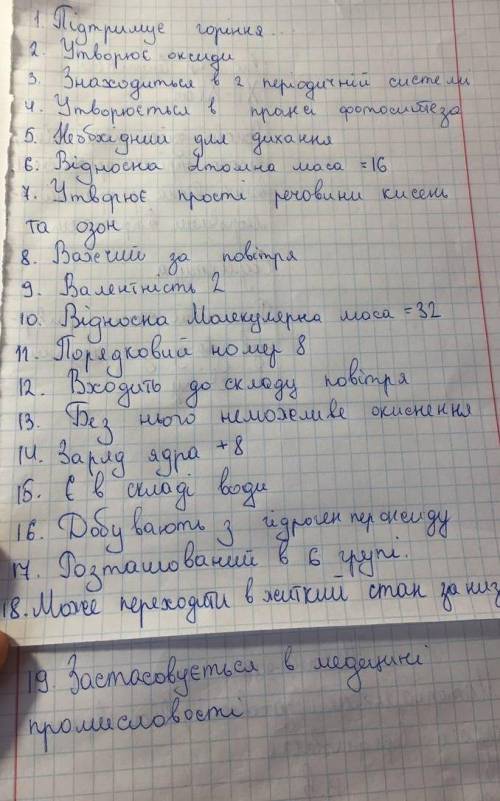 1. Підтримує горіння...
2. Утворює оксиди
3. Знаходиться в 2 періодичній системі
4. Утворюється в працесі фотосинтеза
5. Необхідний для дихання
6. Відносна атомна маса = 16
7. Утворює прості речовини кисень
та озон
8. Важчий за повітря
9. Валентність 2
10. Відносна Молекулярна маса = 32
11. Порядковий номер 8
12. Входить до складу повітря
13. Без нього неможливе окиснення
14. Заряд ядра +8
15. Є в складі води
16. Добувають з гідроген пероксиду
17. Розташований в 6 групі.
18. Може переходити в житкий стан за низ
19. Застасовується в медецині
промисловості